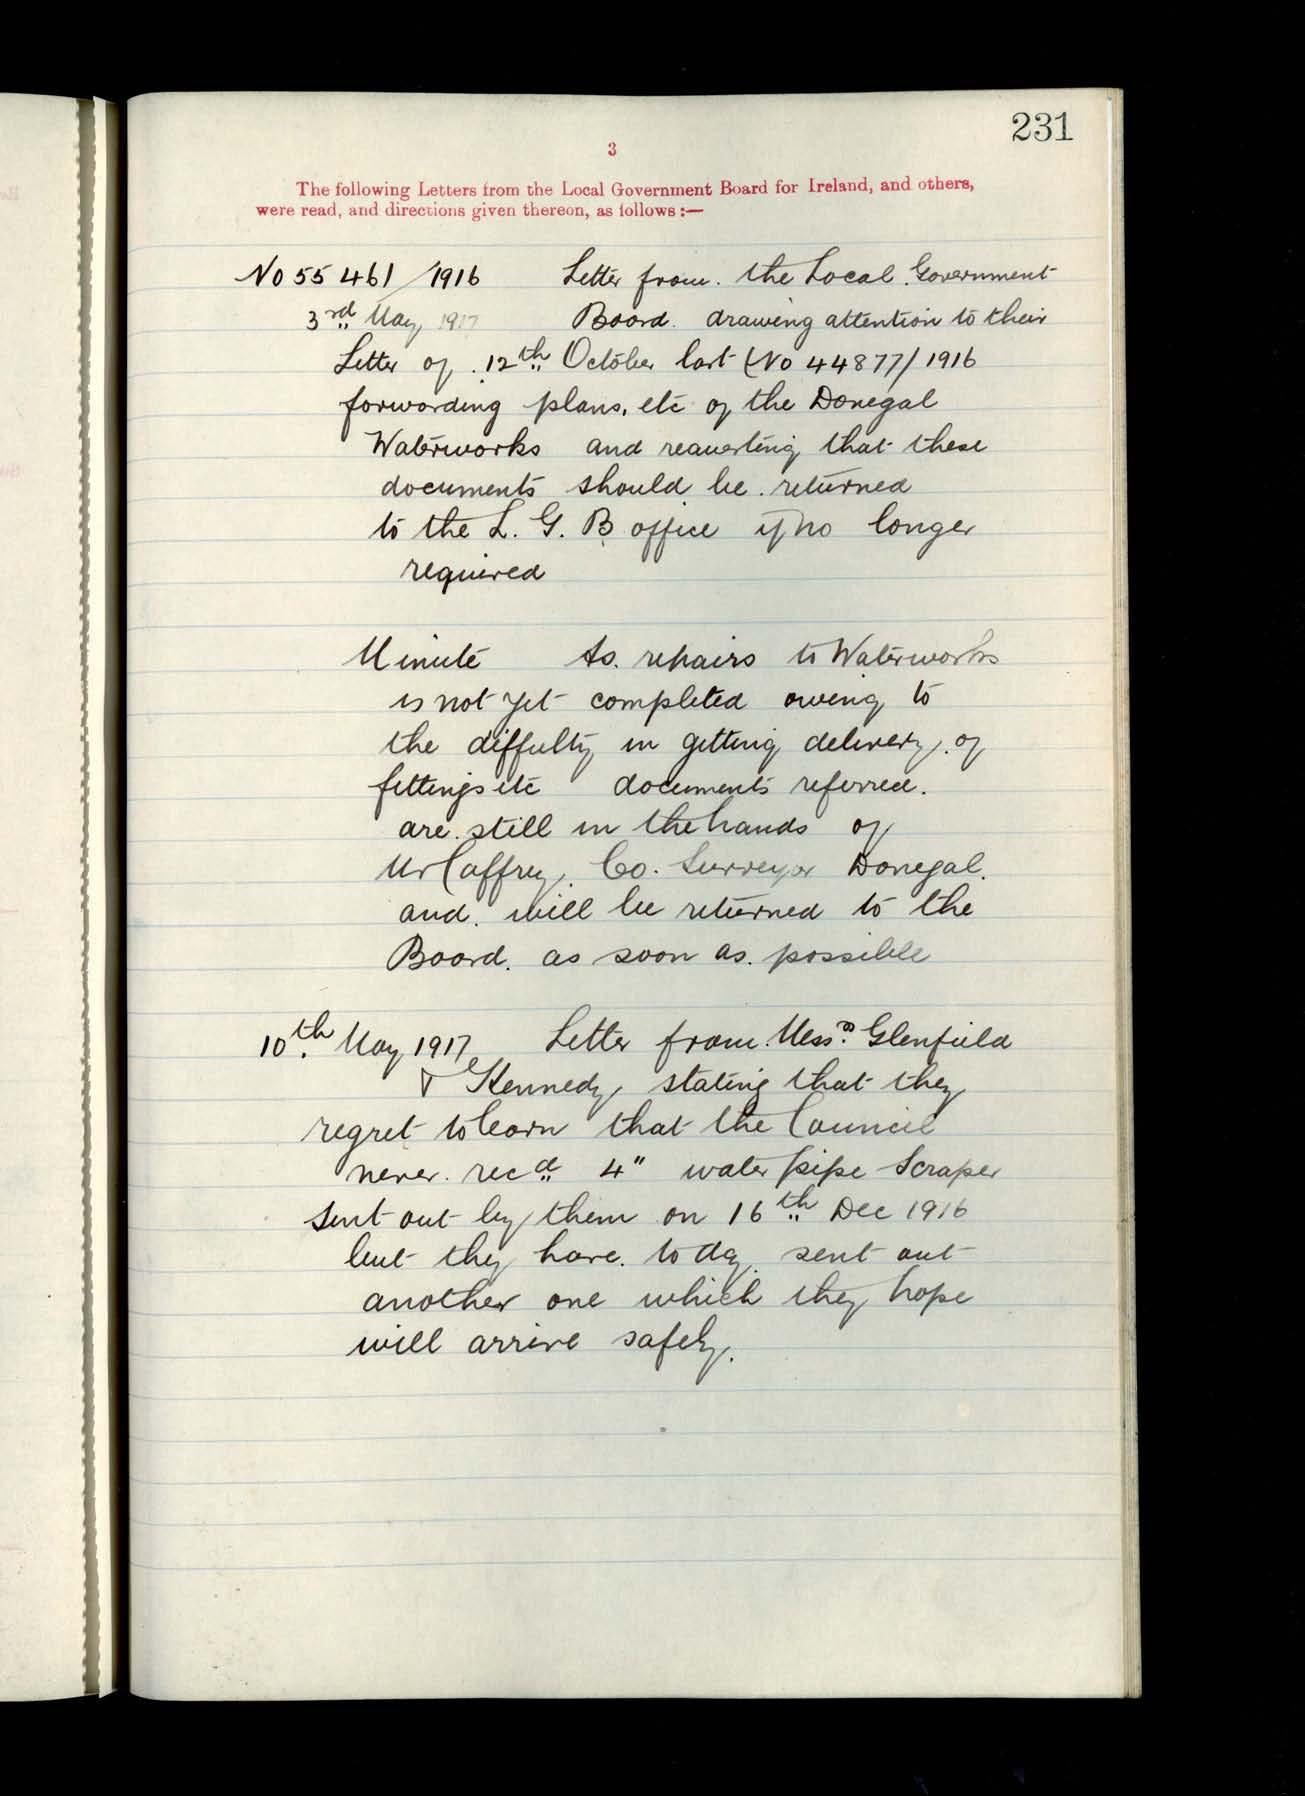 231
3
The following Letters from the Local Government Board for Ireland, and others,
were read, and directions given thereon, as follows :—
No 55461/1916 Letter from the Local Government
3rd May 1917 Board drawing attention to their
Letter of 12th October last (No 44877/1916
forwarding plans, etc of the Donegal
Waterworks and requesting that these
documents should be returned
to the L. G. B office if no longer
required
Minute As repairs to Waterworks
is not yet completed owing to
the diffulty in getting delivery of
fittings etc documents referred.
are still in the hands of
Mr Caffrey Co. Surveyor Donegal.
and will be returned to the
Board as soon as possible
10th May 1917 Letter from Messrs Glenfield
& Kennedy stating that they
regret to learn that the Council
never recd 4" water pipe Scraper
sent out by them on 16th Dec 1916
but they have to day sent out
another one which they hope
will arrive safely.